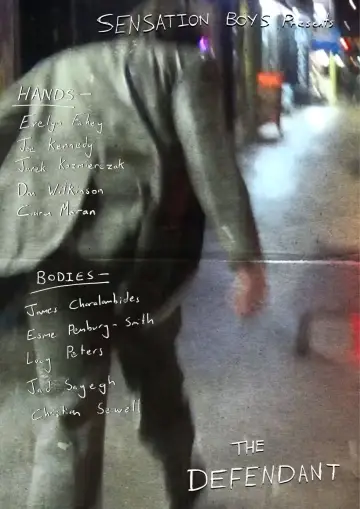 SENSATION BOYS Presents
HANDS -
Evelyn Fahey
Joe Kennedy
Jarek Kazmierczak
Dan Wilkinson
Ciara Moran
BODIES -
James Charalambides
Esme Pemburg-Smith
Lucy Peters
Jad Sayegh
Christian Sewell
THE
DEFENDANT